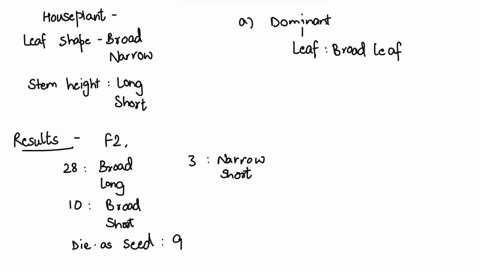 Houseplant -
Leaf shape - Broad
Narrow
Stem height : Long
Short
Results - F2,
28 : Broad
Long
10 : Broad
Short
Die as seed : 9
3 : Narrow
Short
a) Dominant
Leaf : Broad leaf